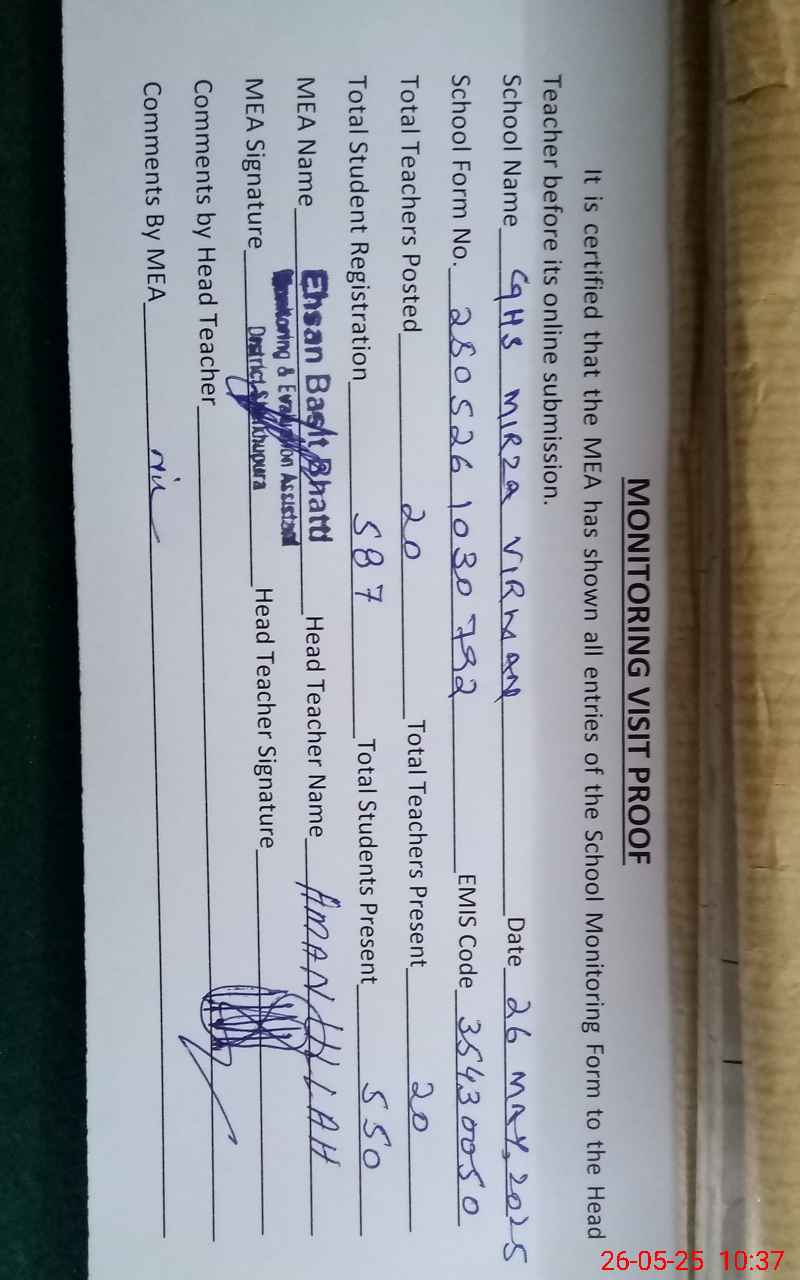 MONITORING VISIT PROOF
It is certified that the MEA has shown all entries of the School Monitoring Form to the Head
Teacher before its online submission.
School Name GHS MIRZA VIRMAN Date 26 MAY, 2025
School Form No. 2805261030792 EMIS Code 35430050
Total Teachers Posted 20 Total Teachers Present 20
Total Student Registration 587 Total Students Present 550
MEA Name Ehsan Basit Bhatti Head Teacher Name AMAN ULLAH
Monitoring & Evaluation Assistant
MEA Signature District Sheikhupura Head Teacher Signature
Comments by Head Teacher
Comments By MEA Nil
26-05-25 10:37